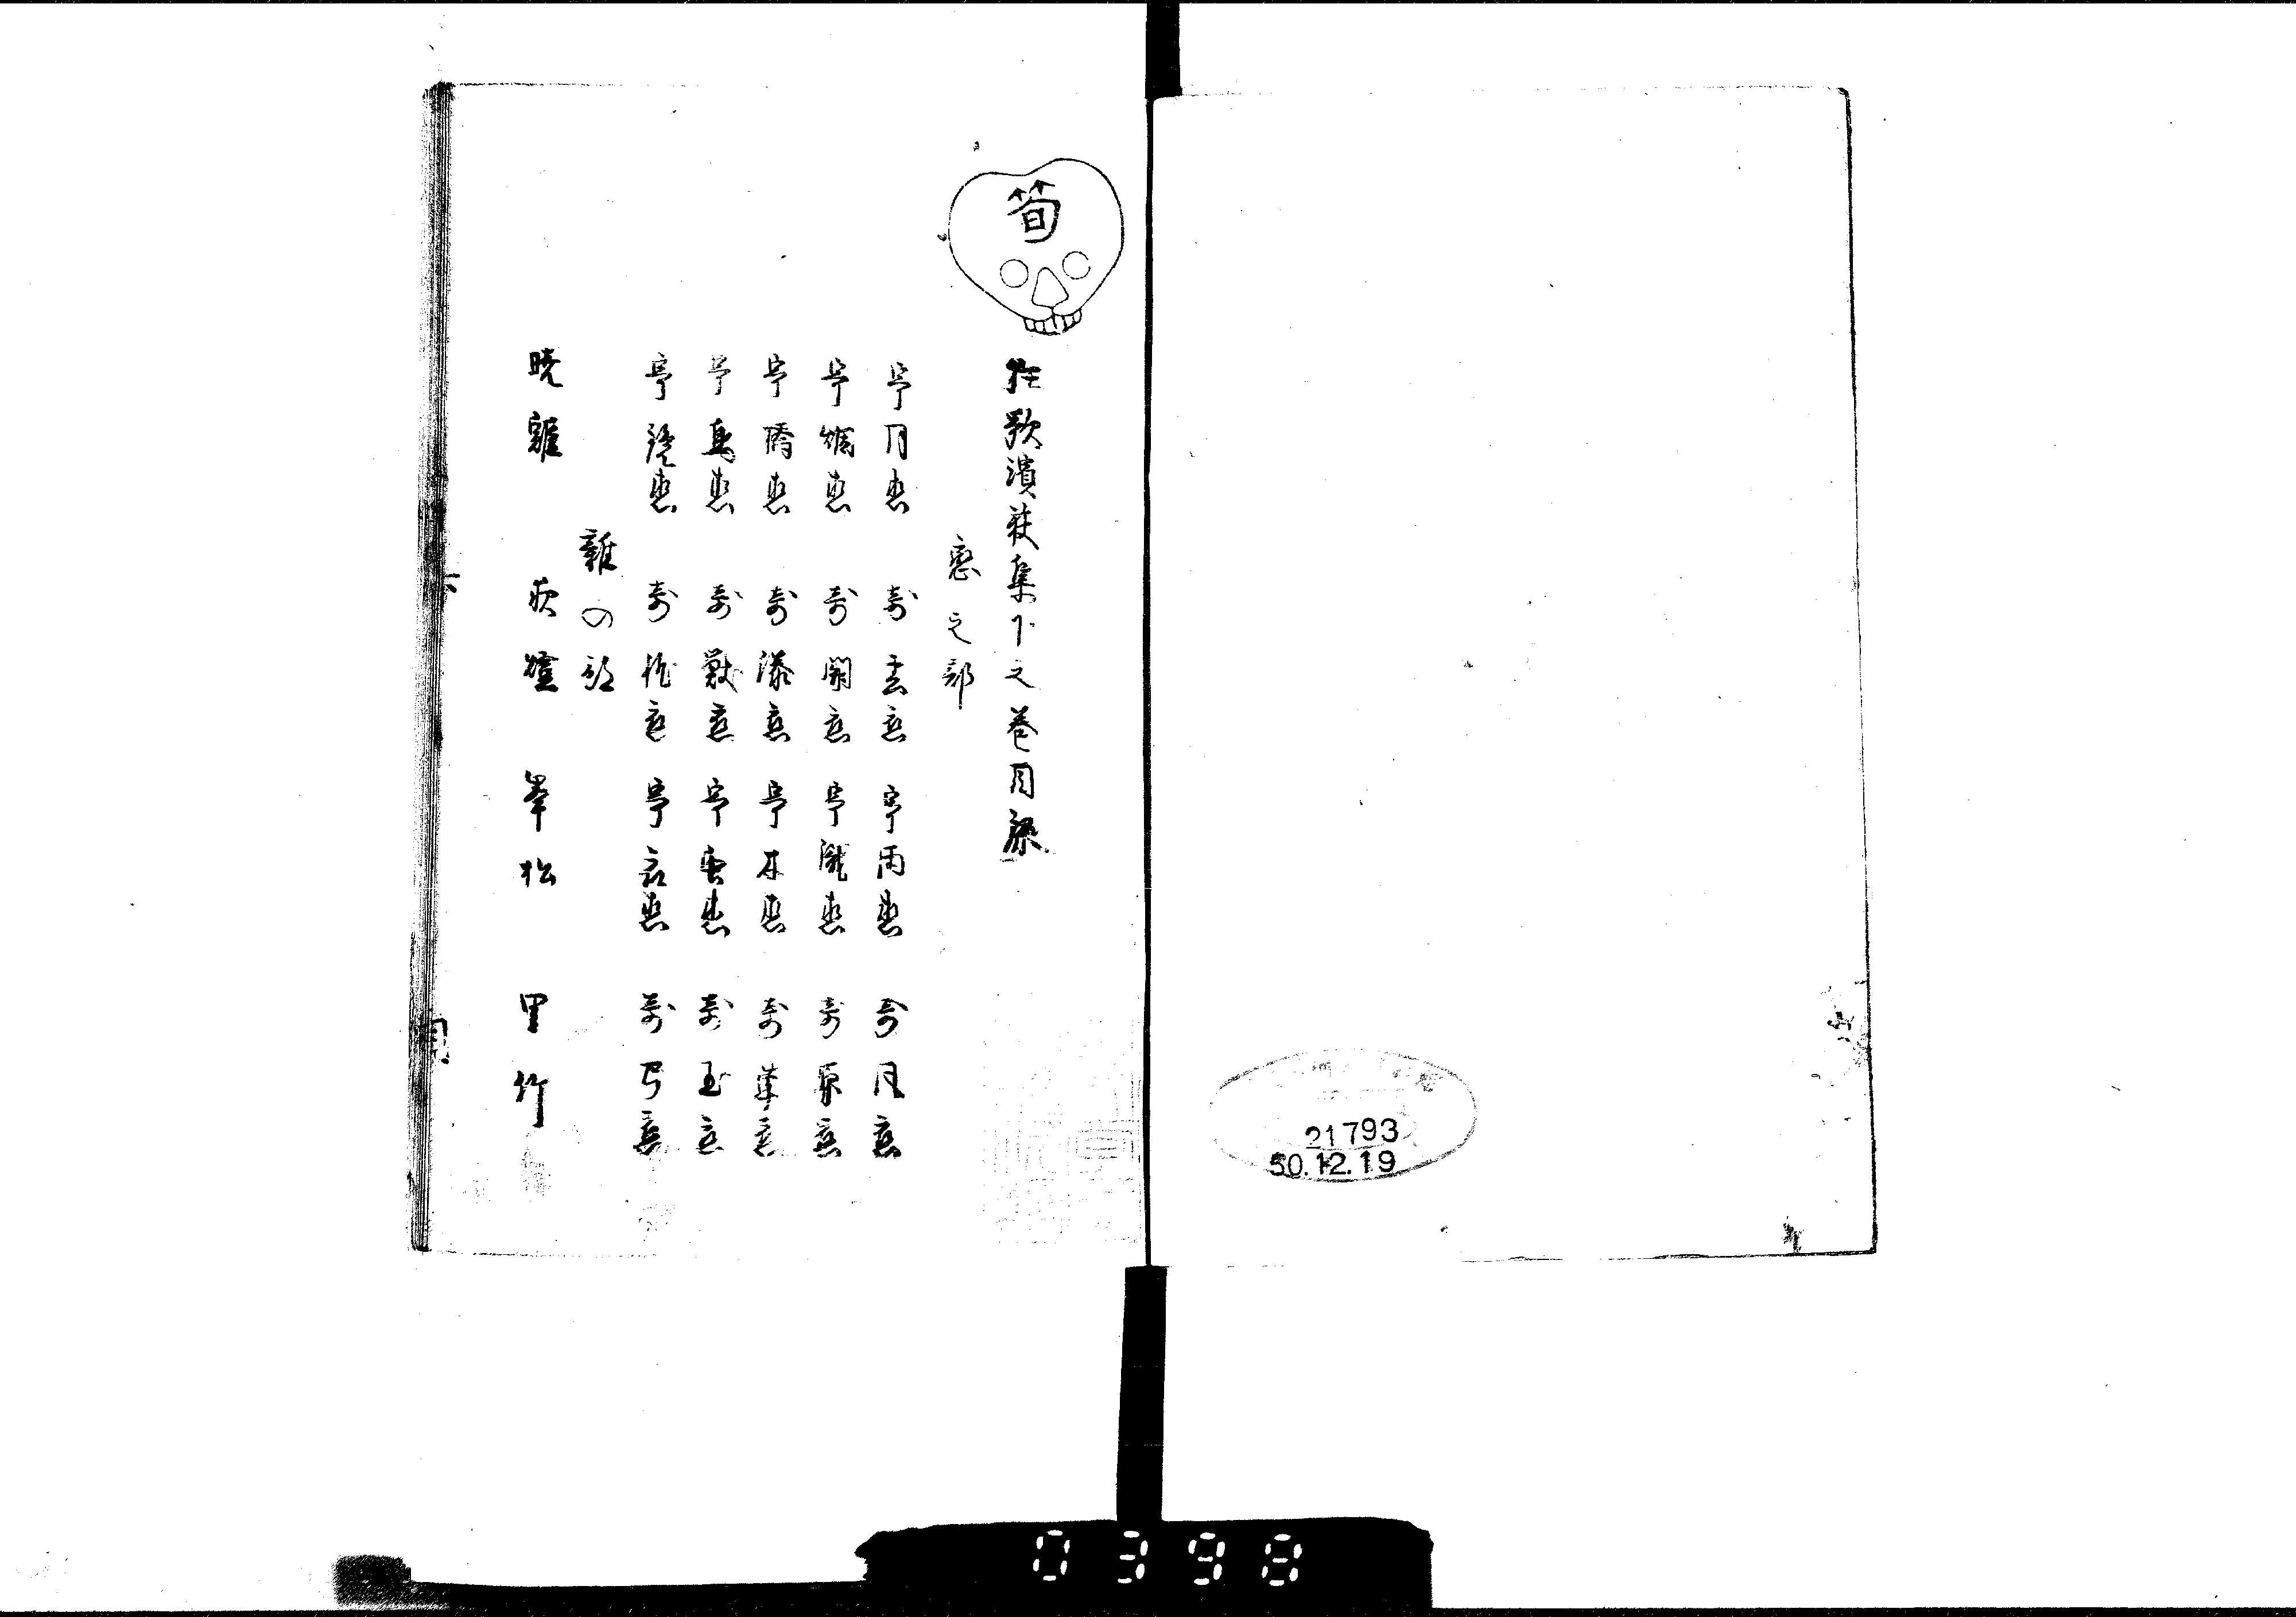 筍
狂歌濱荻集下之巻目録
恋之部
寄月恋 寄雲恋 寄雨恋 寄風恋
寄煙恋 寄関恋 寄瀧恋 寄原恋
寄橋恋 寄藻恋 寄木恋 寄草恋
寄鳥恋 寄獣恋 寄虫恋 寄玉恋
寄鏡恋 寄枕恋 寄衣恋 寄弓恋
雑の部
暁雞 夜燈 峯松 里竹
21793
50.12.19
0398